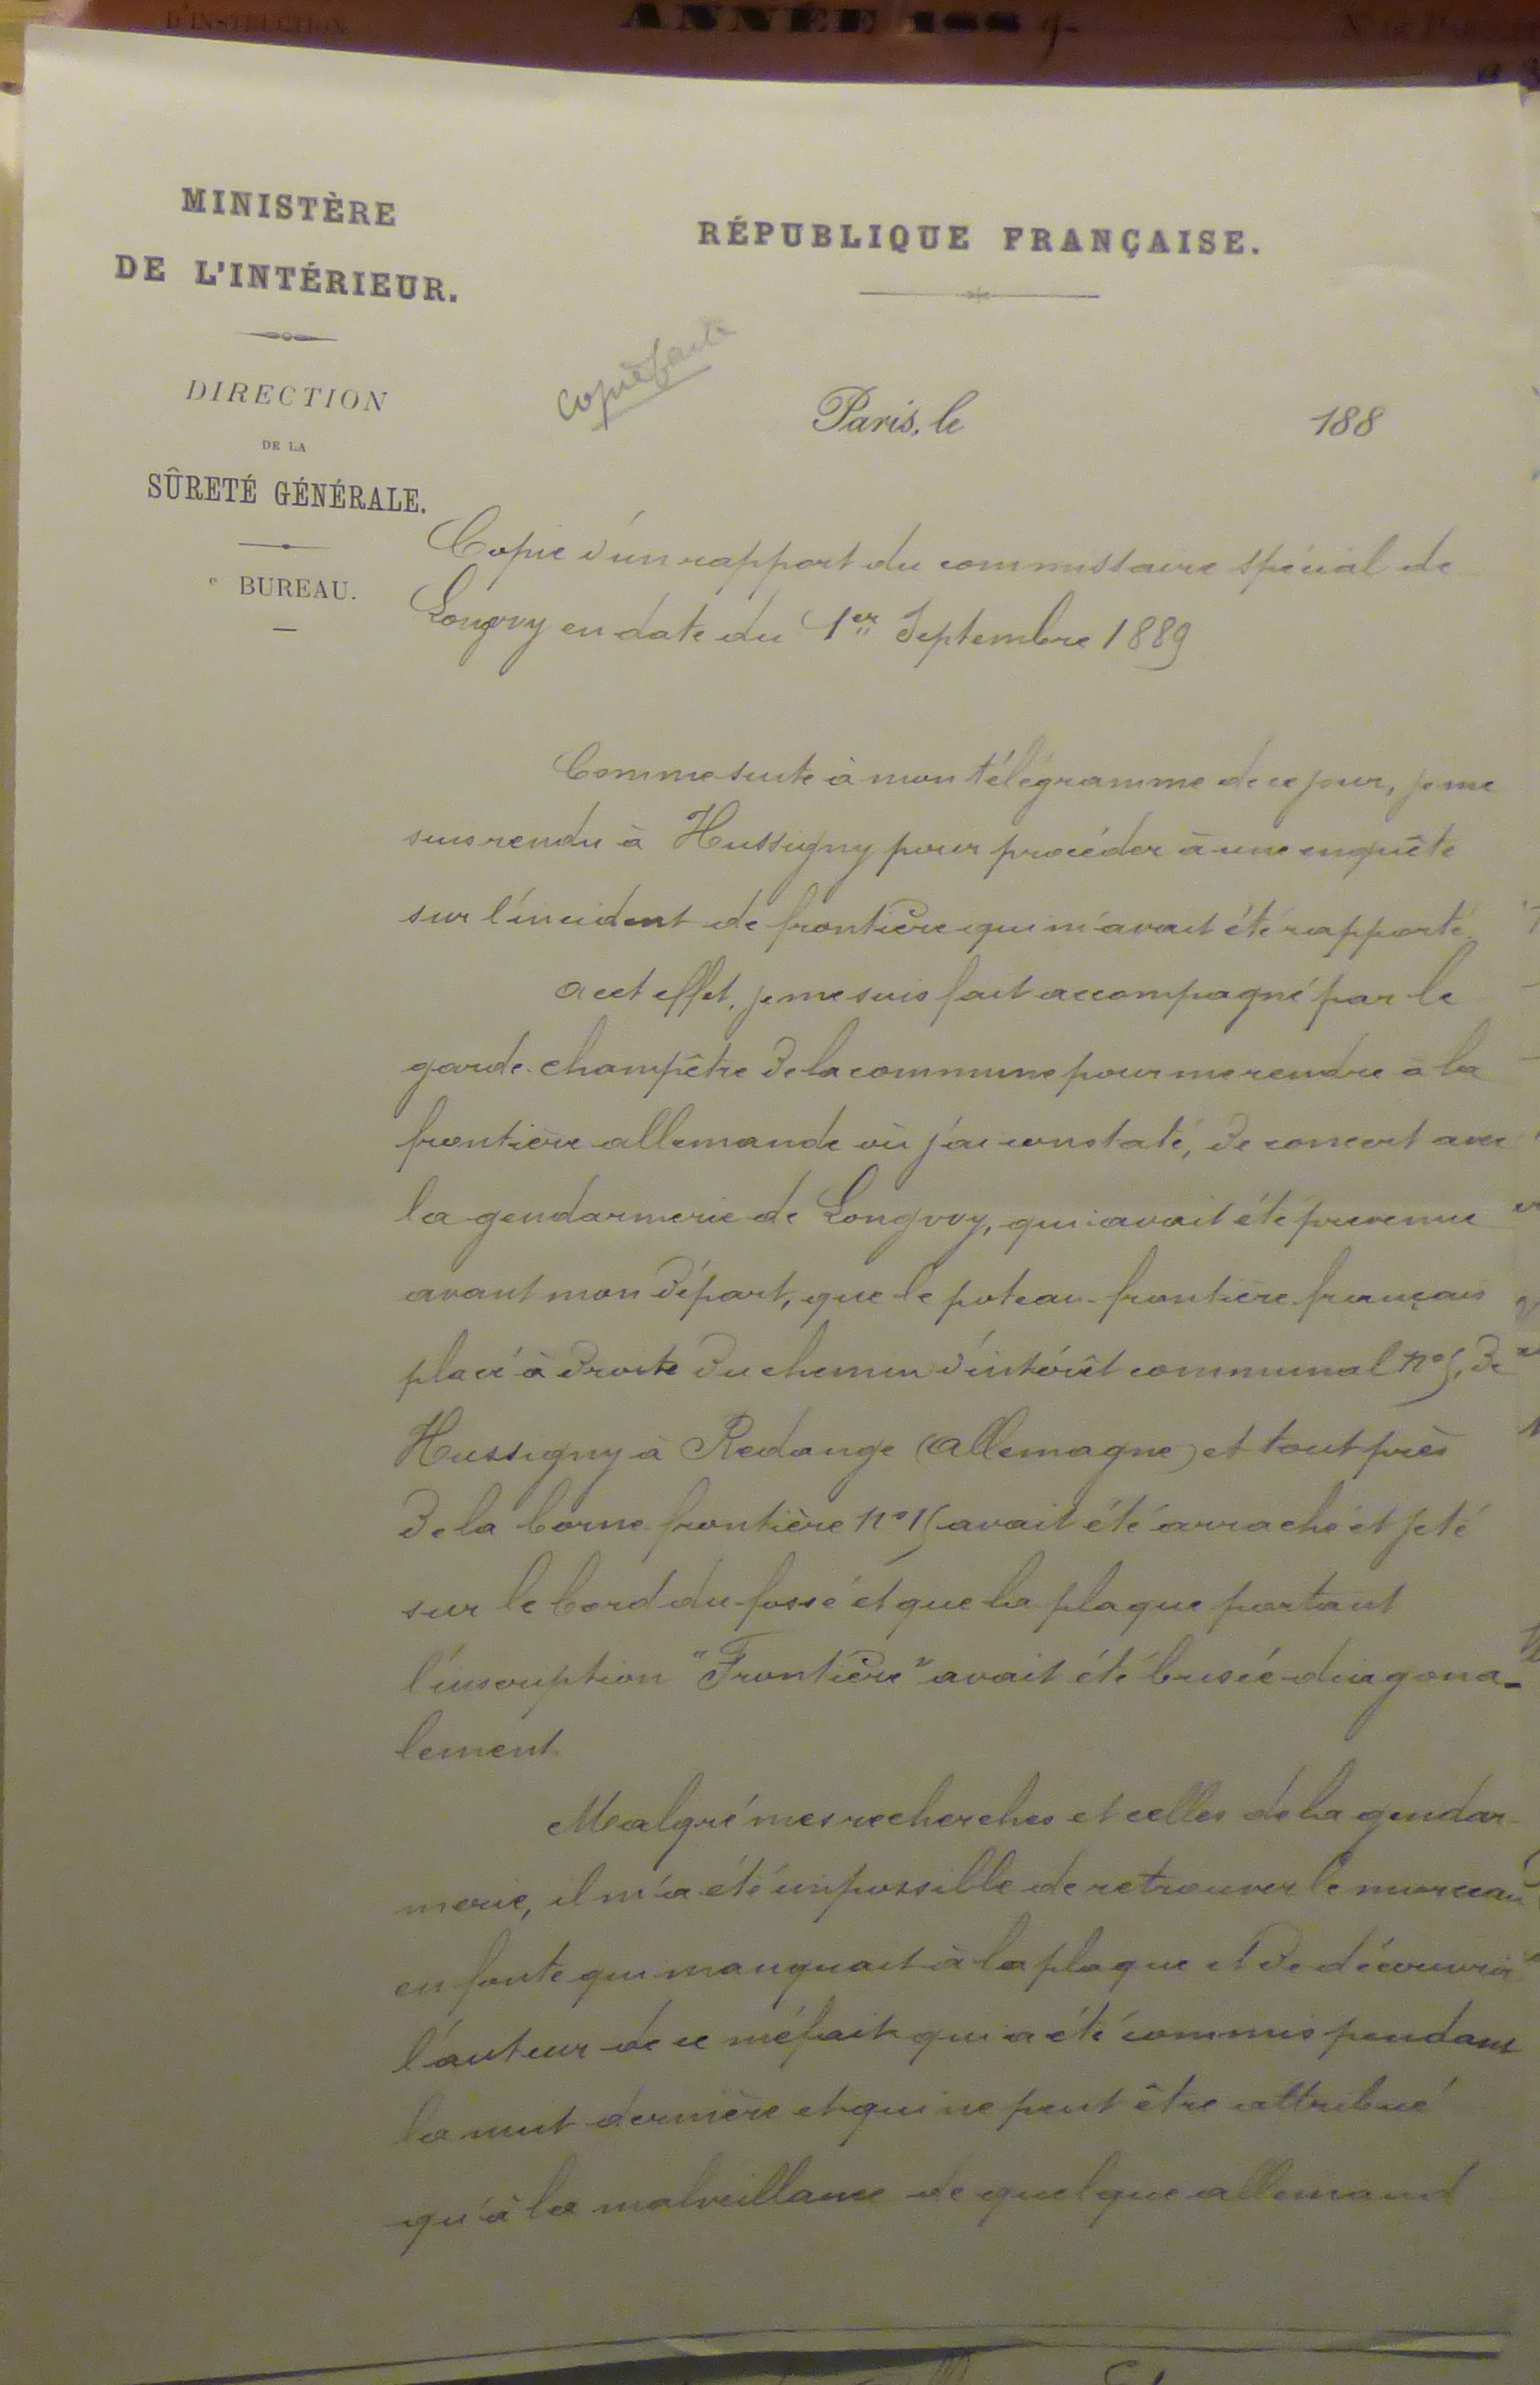 D'INSTRUCTION
ANNÉE 1889
MINISTÈRE
DE L'INTÉRIEUR.
RÉPUBLIQUE FRANÇAISE.
DIRECTION
DE LA
SÛRETÉ GÉNÉRALE.
e BUREAU.
copie faite
Paris, le 188
Copie d'un rapport du commissaire spécial de
Longwy en date du 1er Septembre 1889
Comme suite à mon télégramme de ce jour, je me
suis rendu à Hussigny pour procéder à une enquête
sur l'incident de frontière qui m'avait été rapporté.
A cet effet, je me suis fait accompagné par le
garde-champêtre de la commune pour me rendre à la
frontière allemande où j'ai constaté, de concert avec
la gendarmerie de Longwy, qui avait été prévenue
avant mon départ, que le poteau-frontière français
placé à droite du chemin d'intérêt communal n° 5, de
Hussigny à Redange (Allemagne) et tout près
de la borne frontière n° 15 avait été arraché et jeté
sur le bord du fossé et que la plaque portant
l'inscription "Frontière" avait été brisée diagona-
lement.
Malgré mes recherches et celles de la gendar-
merie, il m'a été impossible de retrouver le morceau
en fonte qui manquait à la plaque et de découvrir
l'auteur de ce méfait qui a été commis pendant
la nuit dernière et qui ne peut être attribué
qu'à la malveillance de quelque allemand